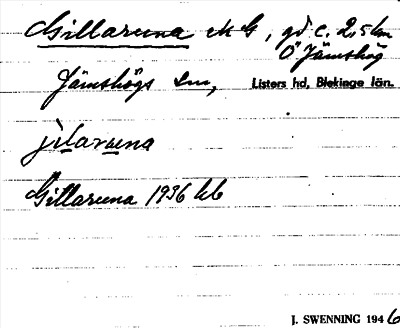 Gillaruna M G, gd. c. 2,5 km
Ö Jämshög
Jämshögs sn, Listers hd, Blekinge län.
jilaruna
Gillaruna 1936 kb
J. SWENNING 1946